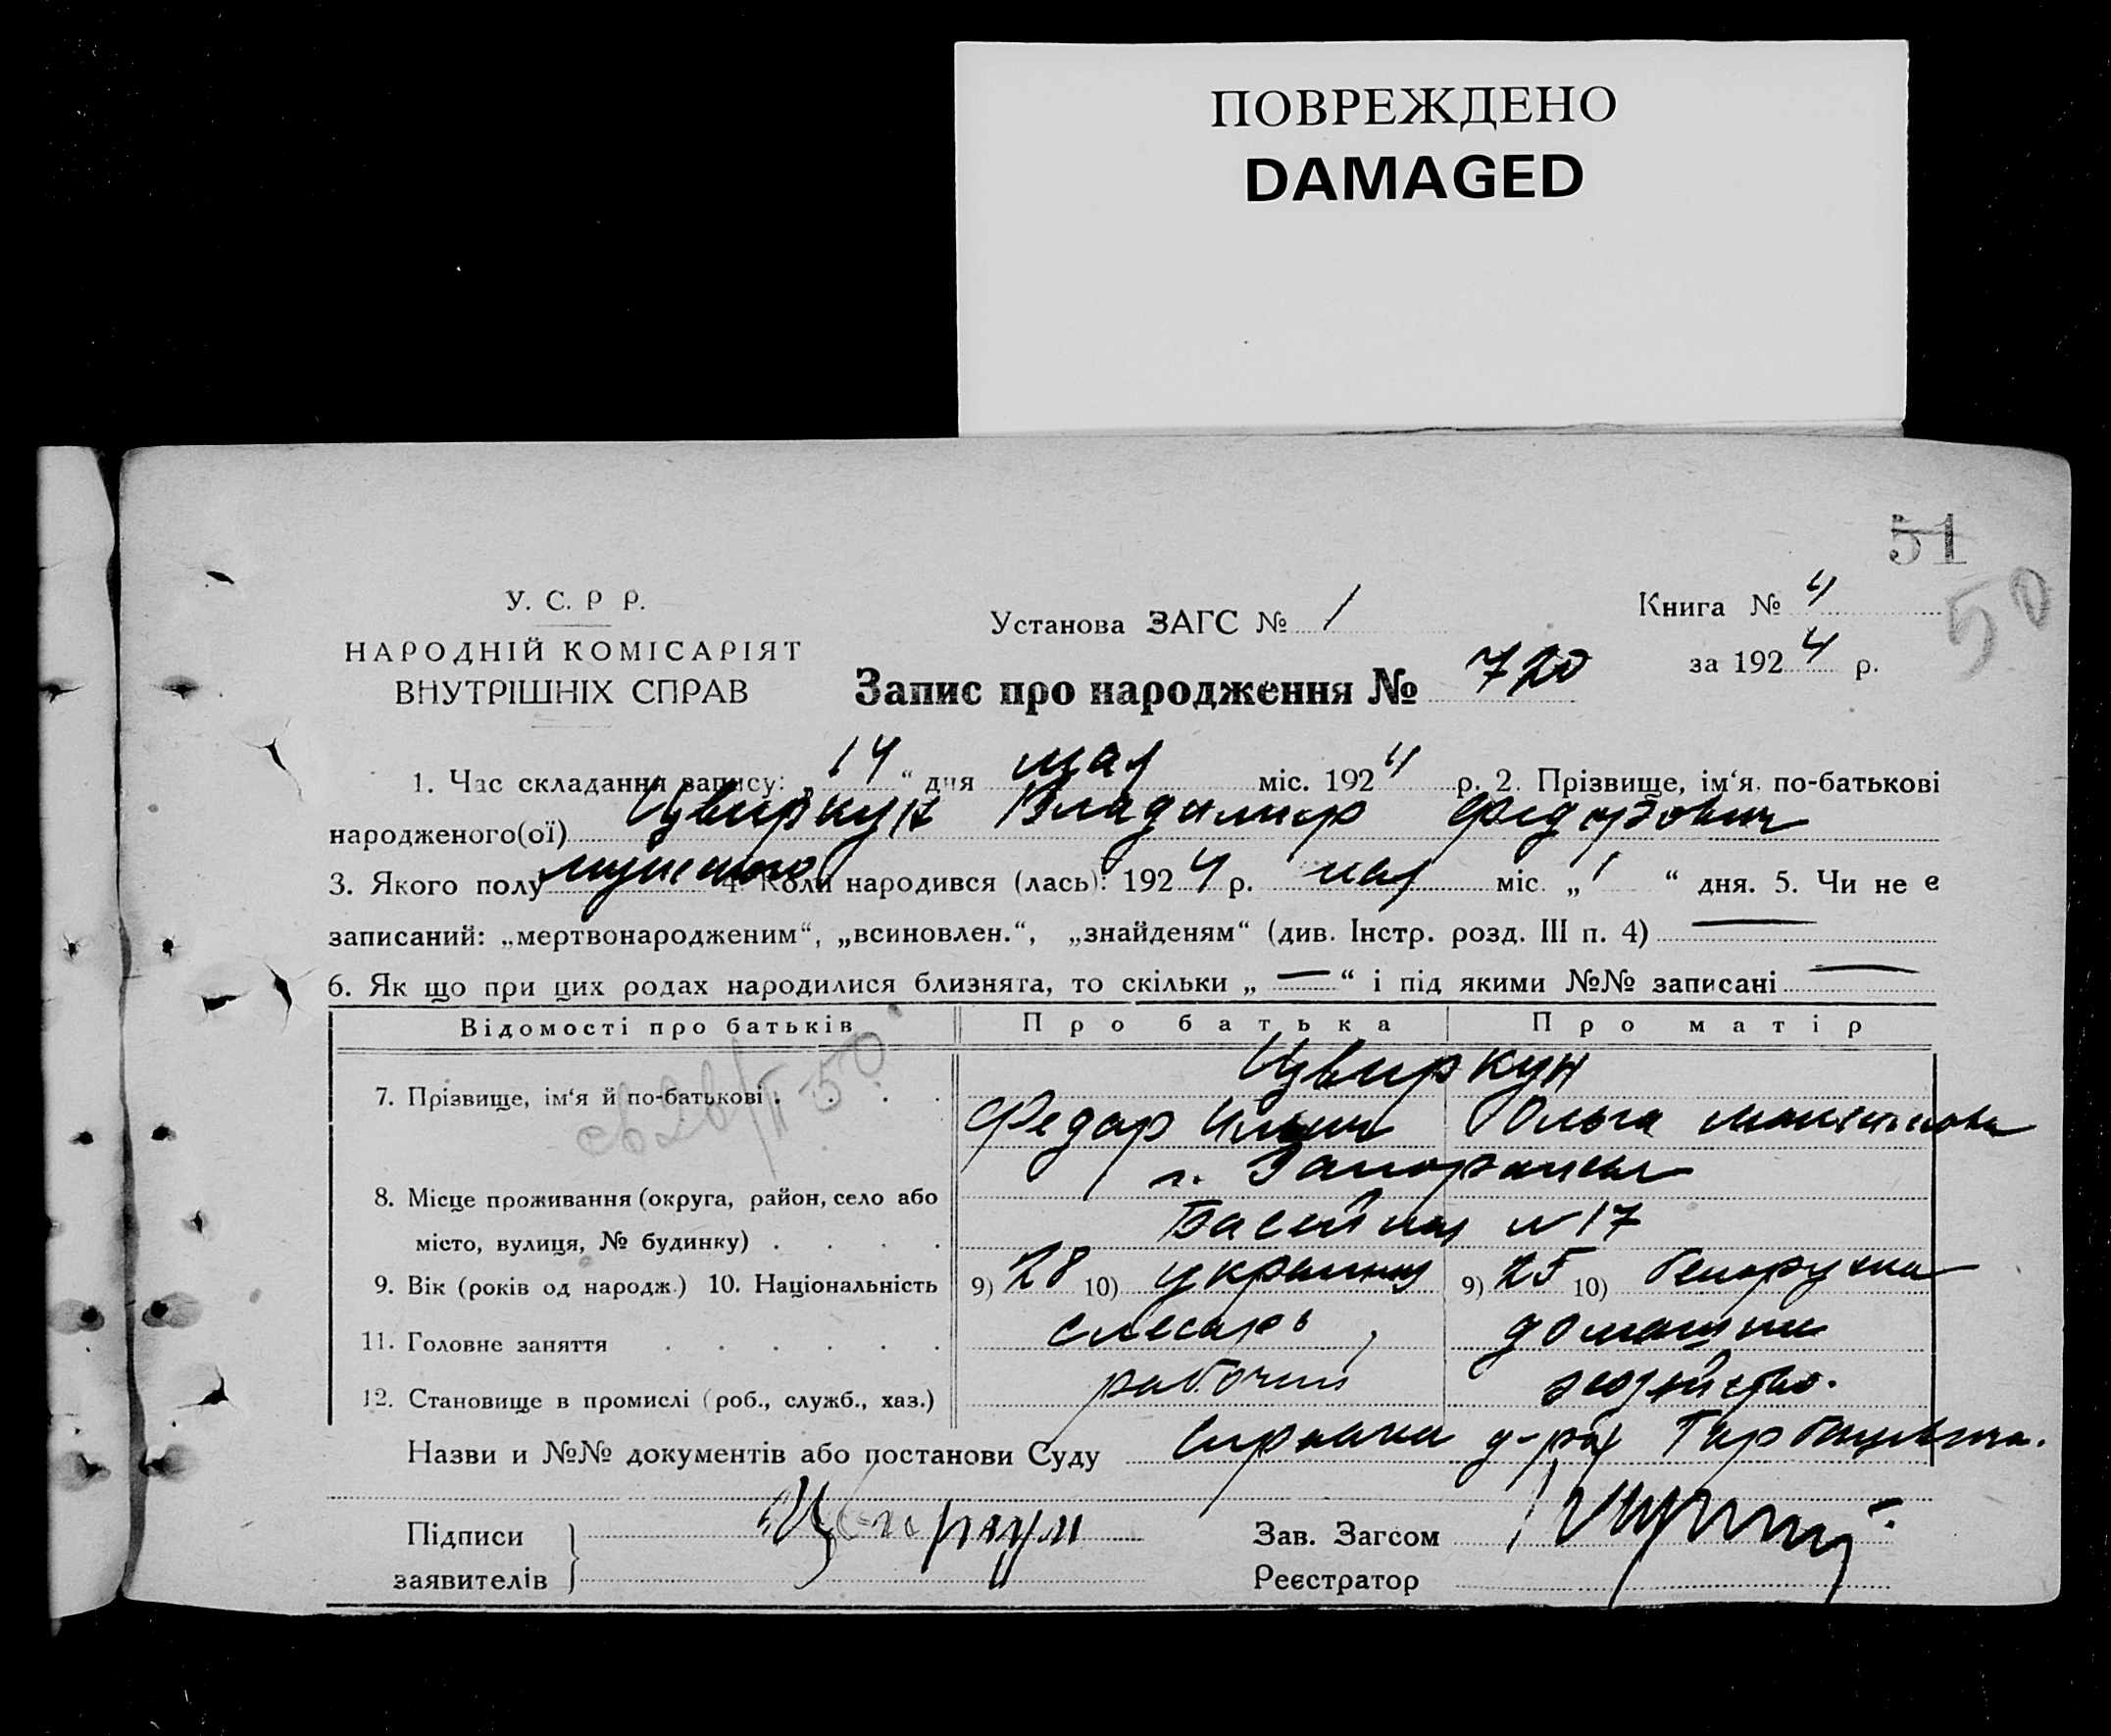 ПОВРЕЖДЕНО
DAMAGED
51
50
У. С. Р Р.
НАРОДНІЙ КОМІСАРІЯТ
ВНУТРІШНІХ СПРАВ
Установа ЗАГС № 1
Книга № 4
за 1924 р.
Запис про народження № 720
1. Час складання запису: 14 “ дня мая міс. 1924 р. 2. Прізвище, ім‘я, по-батькові
народженого(ої) Цвиркун Владимир Федорович
3. Якого полу мужского 4. Коли народився (лась): 1924 р. мая міс. „ 1 “ дня. 5. Чи не є
записаний: „мертвонародженим“, „всиновлен.“, „знайденям“ (див. Інстр. розд. III п. 4) —
6. Як що при цих родах народилися близнята, то скільки „ — “ і під якими №№ записані —
Відомості про батьків Про батька Про матір
Цвиркун
7. Прізвище, ім‘я й по-батькові . . . .
Федор Ильич Ольга
г. Запорожье
8. Місце проживання (округа, район, село або
місто, вулиця, № будинку) . . . . Басейная N 17
9. Вік (років од народж.) 10. Національність 9) 28 10) украинец 9) 25 10) белоруска
11. Головне заняття . . . . . . слесарь, домашнее
12. Становище в промислі (роб., служб., хаз.) рабочий хозяйство.
Назви и №№ документів або постанови Суду справка д-ра
Підписи
заявителів
Цвиркун
Зав. Загсом
Реєстратор